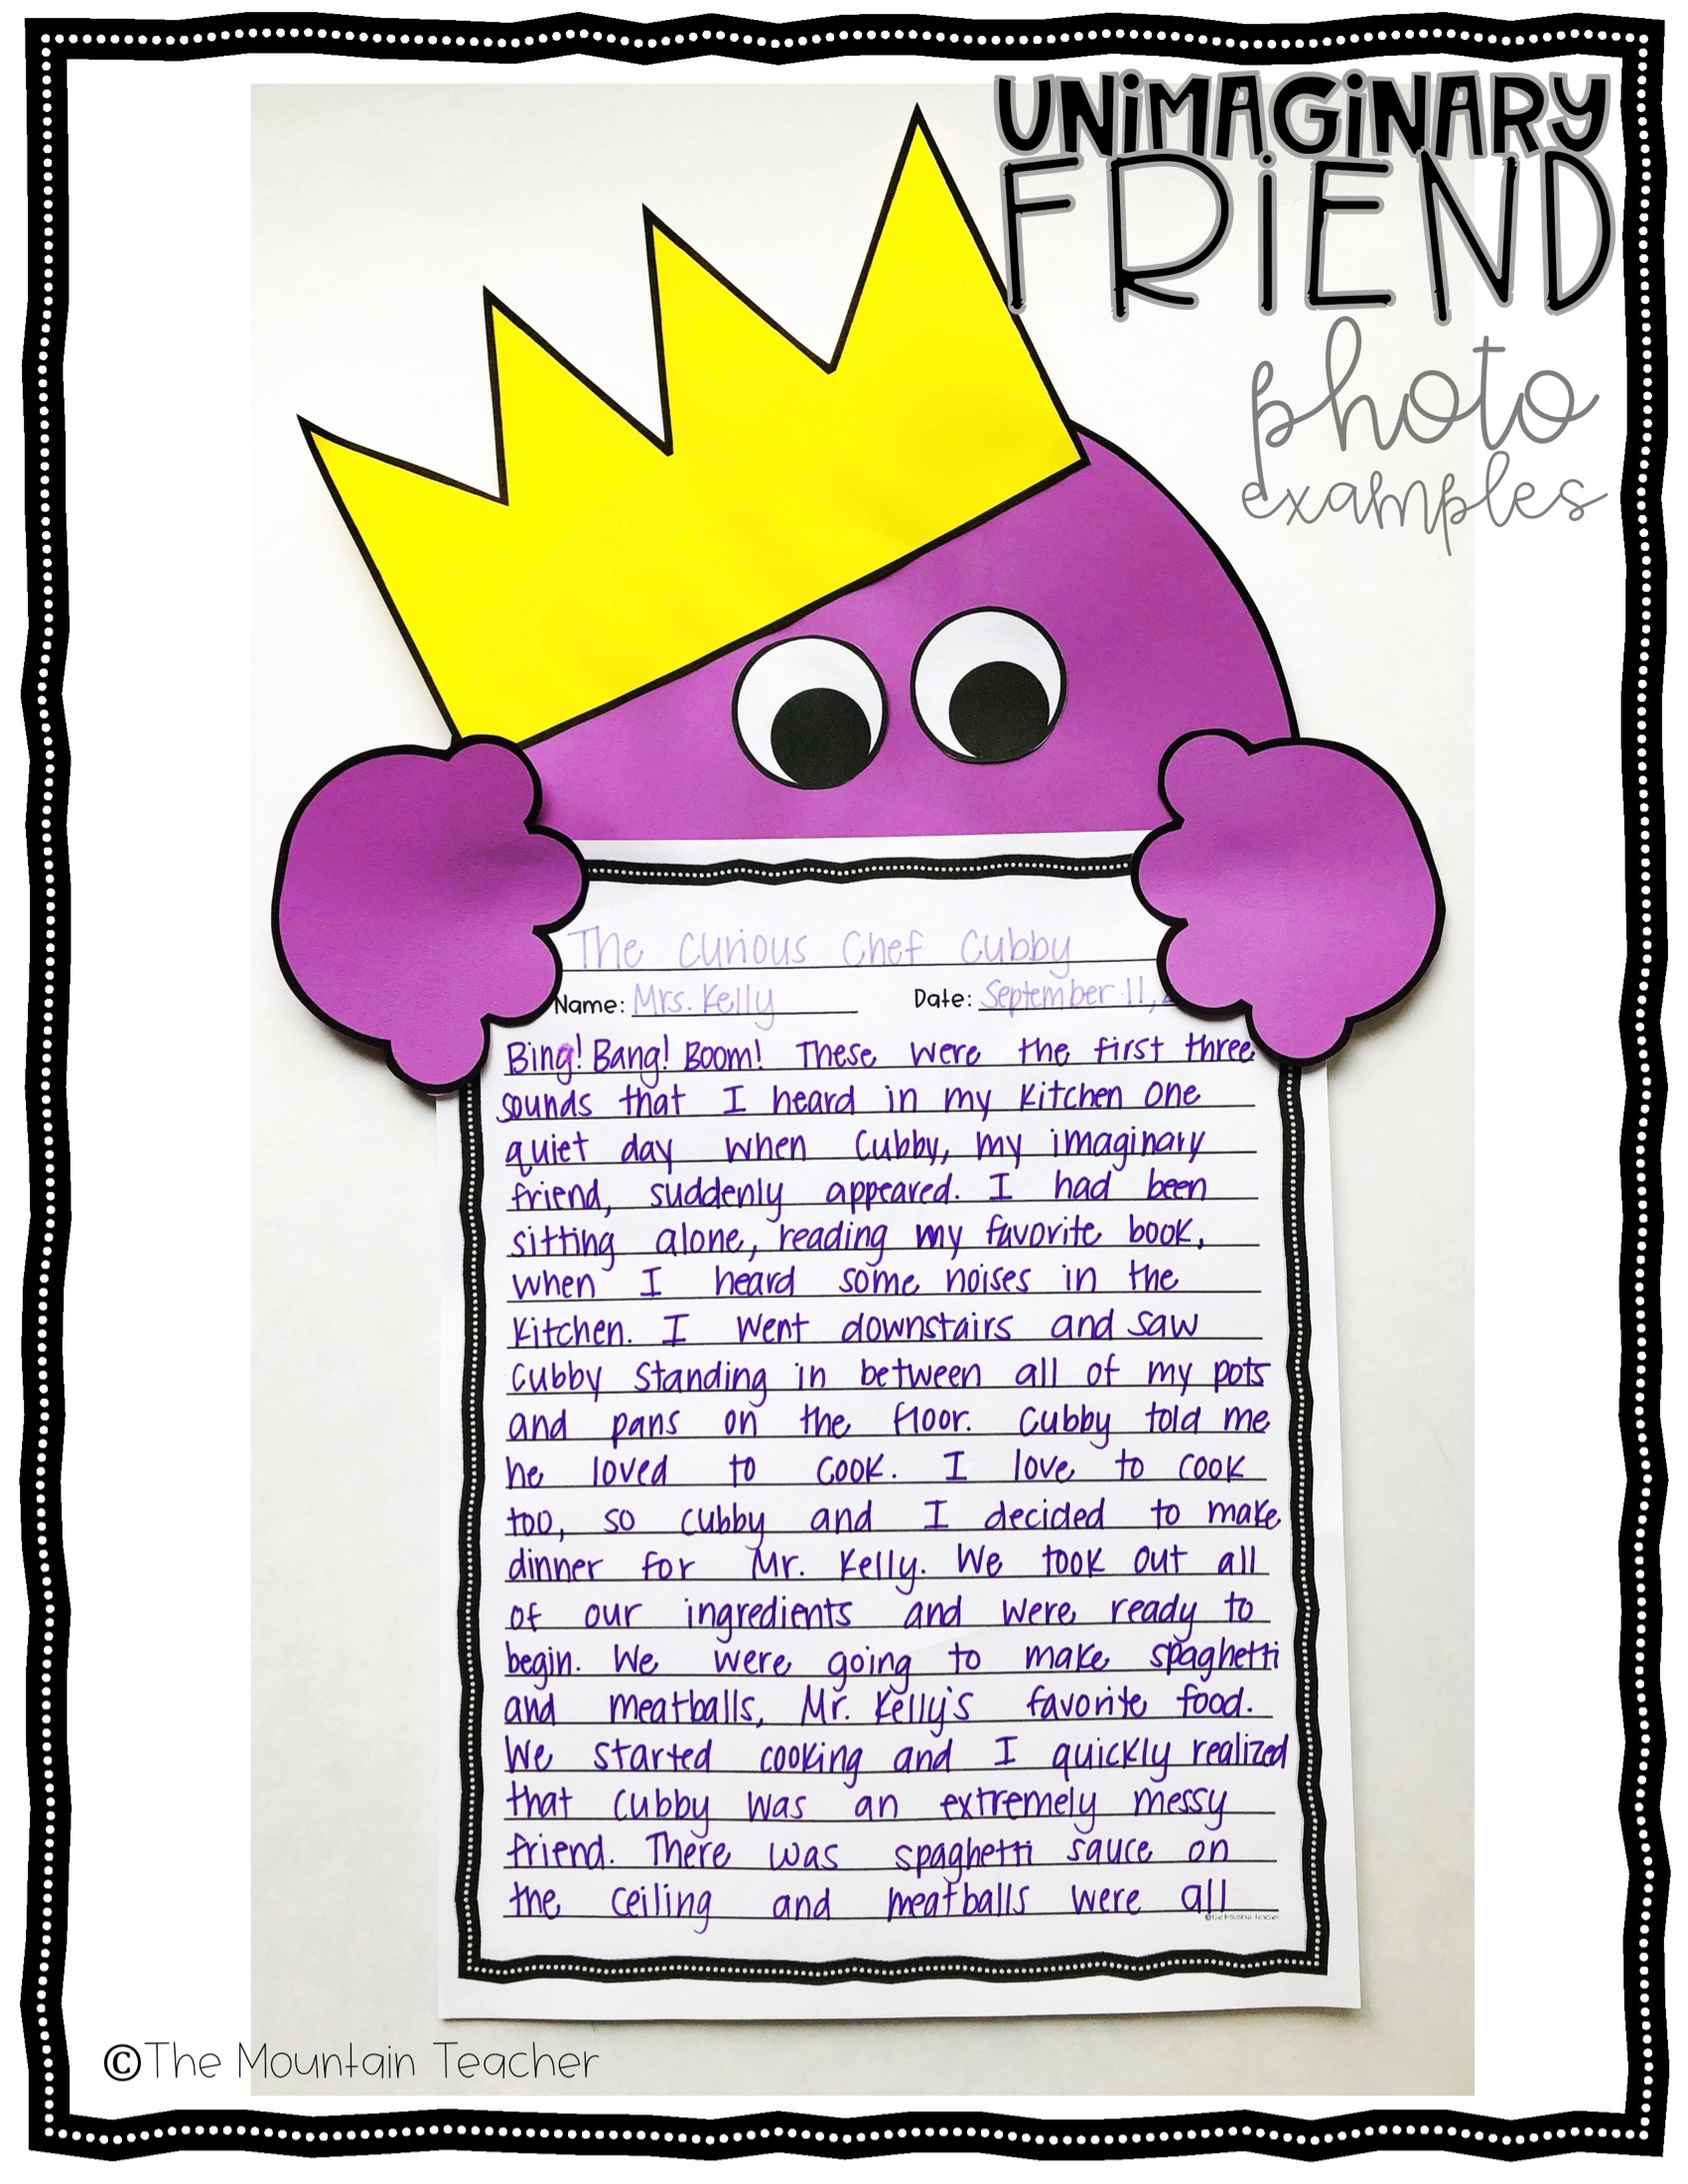 UNiMAGiNARY
FRiEND
photo
examples
The Curious Chef Cubby
Name: Mrs. Kelly Date: September 11,
Bing! Bang! Boom! These were the first three
sounds that I heard in my kitchen one
quiet day when Cubby, my imaginary
friend, suddenly appeared. I had been
sitting alone, reading my favorite book,
when I heard some noises in the
kitchen. I went downstairs and saw
Cubby standing in between all of my pots
and pans on the floor. Cubby told me
he loved to cook. I love to cook
too, so Cubby and I decided to make
dinner for Mr. Kelly. We took out all
of our ingredients and were ready to
begin. We were going to make spaghetti
and meatballs, Mr. Kelly's favorite food.
We started cooking and I quickly realized
that Cubby was an extremely messy
friend. There was spaghetti sauce on
the ceiling and meatballs were all
©The Mountain Teacher
©The Mountain Teacher